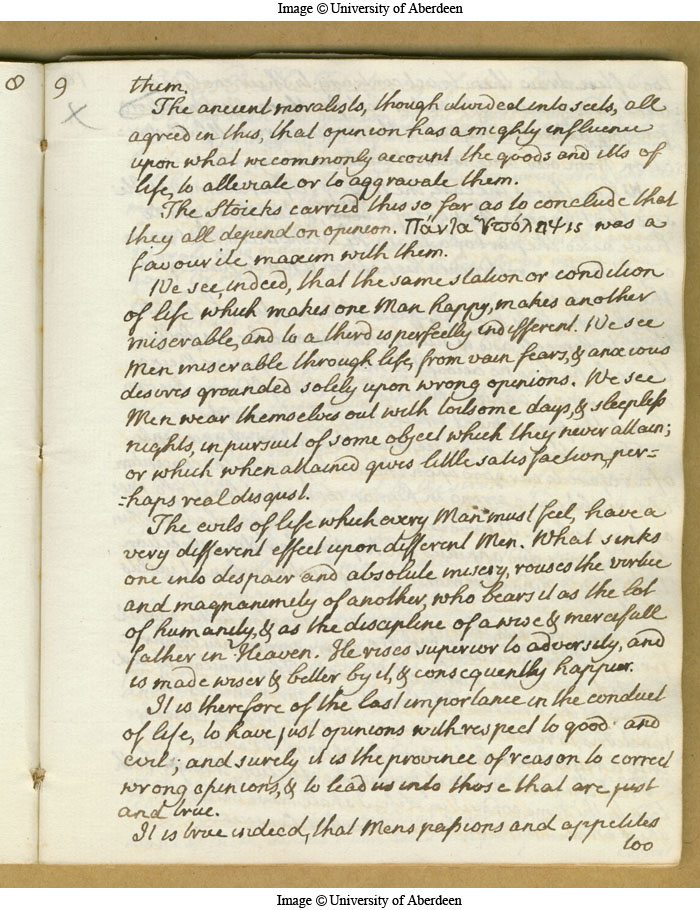 Image © University of Aberdeen
8
9
x
them.
The ancient moralists, though divided into sects, all
agreed in this, that opinion has a mighty influence
upon what we commonly account the goods and ills of
life, to alleviate or to aggravate them.
The Stoicks carried this so far as to conclude that
they all depend on opinion. Πάντα Ὑπόληψις was a
favourite maxim with them.
We see, indeed, that the same station or condition
of life which makes one Man happy, makes another
miserable, and to a third is perfectly indifferent. We see
Men miserable through life, from vain fears, & anxious
desires grounded solely upon wrong opinions. We see
Men wear themselves out with toilsome days, & sleepless
nights, in pursuit of some object which they never attain;
or which when attained gives little satisfaction, per=
=haps real disgust.
The evils of life which every Man must feel, have a
very different effect upon different Men. What sinks
one into despair and absolute misery, rouses the virtue
and magnanimity of another, who bears it as the lot
of humanity, & as the discipline of a wise & mercifull
father in Heaven. He rises superior to adversity, and
is made wiser & better by it, & consequently happier.
It is therefore of the last importance in the conduct
of life, to have just opinions with respect to good and
evil; and surely it is the province of reason to correct
wrong opinions, & to lead us into those that are just
and true.
It is true indeed, that Mens passions and appetites
too
Image © University of Aberdeen